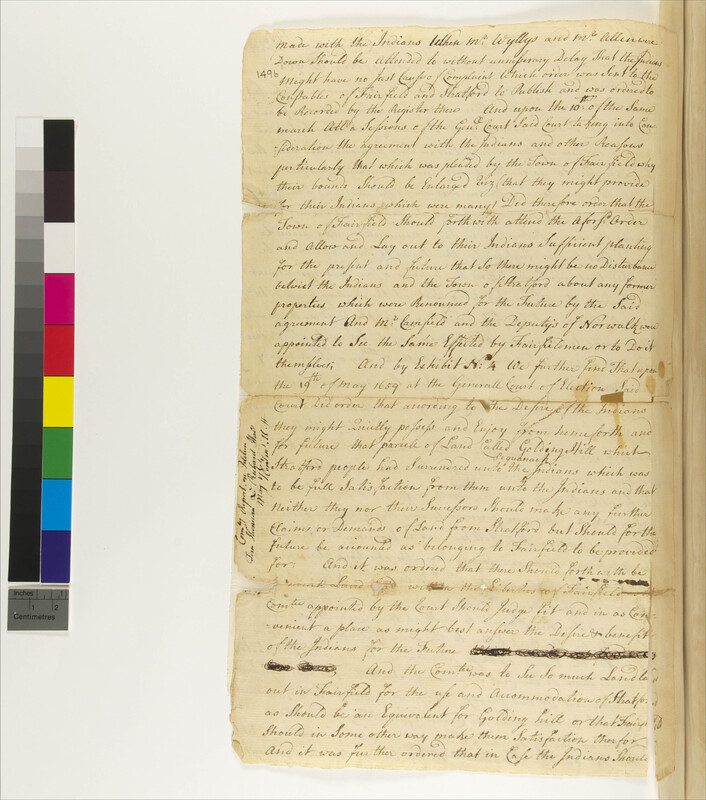 made with the Indians When Mr. Wyllys and Mr. Allen were
Down Should be Attended to without unnissesary Delay That the Indians
149b
might have no Just Cause of Complaint Which order was Sent to the
Constables of Fairfield and Stratford to Publish and was ordered to
be Recorded by the Register there And upon the 10th. of the Same
march Att a Sessions of the Genll. Court Said Court taking into Con
-sideration the agreement with the Indians and other Reasons
particularly that which was pleaded by the Town of Fairfield why
their bounds Should be Enlarged Viz (that they might provide
for their Indians which were many) Did therefore order that the
Town of Fairfield Should forthwith attend the aforsd. Order
and Allow and Lay out to their Indians Sufficient planting
for the present and future that So there might be no Disturbance
betwixt the Indians and the Town of Stratford about any former
properties which were Renounced for the Future by the Said
agreement And Mr. Camfield and the Deputys of Norwalk were
appointed to See the Same Effected by Fairfieldmen or to Do it
themselves; And by Exhibit No. 4 We further find That upon
the 19th of May 1659 at the Generall Court of Election Said
Court Did order that according to the Desire of the Indians
they might Quietly possess and Enjoy from henceforth and
for future that parcell of Land Called Golding Hill which
Pequanack
Stratford people had Surrendred unto the Indians which was
to be full Satisfaction from them unto the Indians and that
Neither they nor their Successors Should make any further
Claims or Demands of Land from Stratford but Should for the
future be accounted as belonging to Fairfield to be provided
for. And it was ordered that there Should forthwith be
Land within the Liberties of Fairfield
Comtee appointed by the Court Should Judge fit and in as Con-
-venient a place as might best answer the Desire & benefit
of the Indians for the Future
And the Comtee was to See So much Land laid
out in Fairfield for the use and Accommodation of Stratford
as Should be an Equivalent for Golding hill or that Fairfield
Should in Some other way make them Satisfaction therfor
And it was further ordered that in Case the Indians Should
Comtes Report on Petition
Tom Sherman &
May 1765